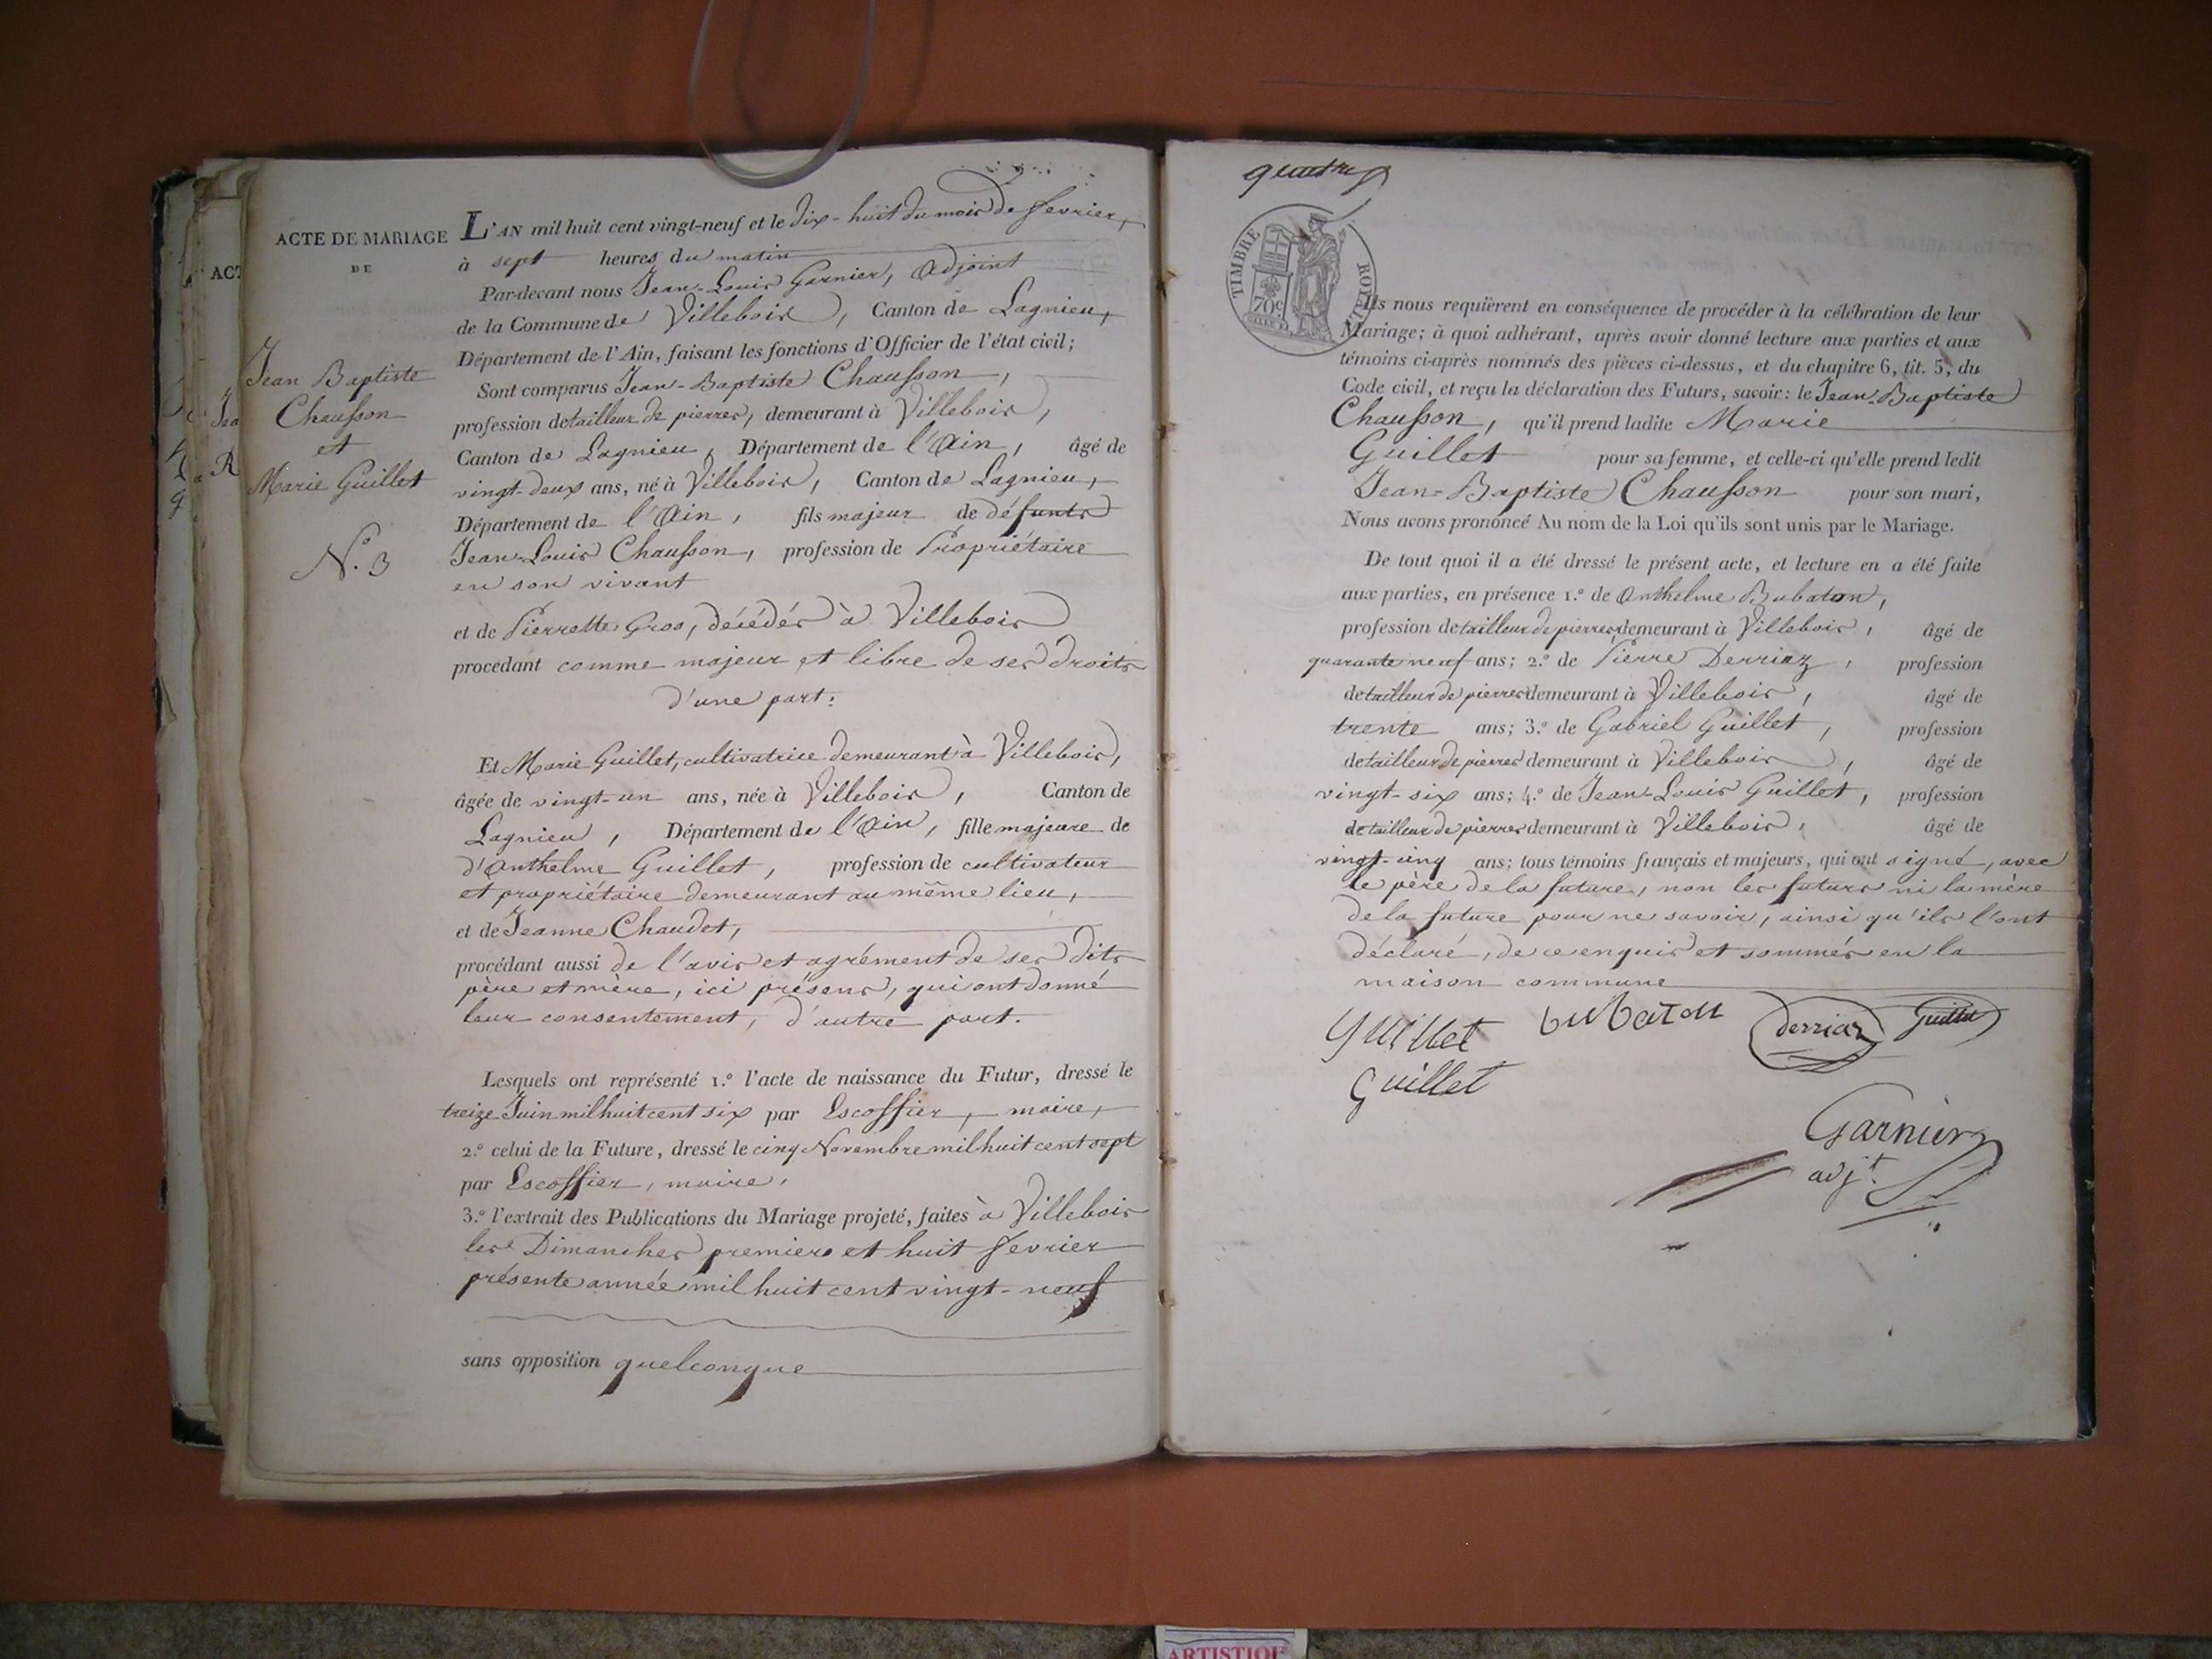 ACTE DE MARIAGE
DE
Jean Baptiste
Chausson
et
Marie Guillet
N.º 3
L'AN mil huit cent vingt-neuf et le dix-huit du mois de fevrier,
à sept heures du matin
Par-devant nous Jean-Louis Garnier, Adjoint
de la Commune de Villebois, Canton de Lagnieu,
Département de l'Ain, faisant les fonctions d'Officier de l'état civil;
Sont comparus Jean-Baptiste Chausson,
profession de tailleur de pierres, demeurant à Villebois,
Canton de Lagnieu, Département de l'Ain, âgé de
vingt-deux ans, né à Villebois, Canton de Lagnieu,
Département de l'Ain, fils majeur de défunts
Jean-Louis Chausson, profession de Propriétaire
en son vivant
et de Pierrette Gros, décédés à Villebois
procédant comme majeur et libre de ses droits
d'une part:
Et Marie Guillet, cultivatrice demeurant à Villebois,
âgée de vingt-un ans, née à Villebois, Canton de
Lagnieu, Département de l'Ain, fille majeure de
d'Anthelme Guillet, profession de cultivateur
et propriétaire demeurant au même lieu,
et de Jeanne Chaudet,
procédant aussi de l'avis et agrément de ses dits
père et mère, ici présens, qui ont donné
leur consentement, d'autre part.
Lesquels ont représenté 1.º l'acte de naissance du Futur, dressé le
treize Juin mil huit cent six par Escoffier, maire,
2.º celui de la Future, dressé le cinq Novembre mil huit cent sept
par Escoffier, maire,
3.º l'extrait des Publications du Mariage projeté, faites à Villebois
les Dimanches premiers et huit fevrier
présente année mil huit cent vingt-neuf
sans opposition quelconque
quatre
TIMBRE ROYAL
70c
Ils nous requièrent en conséquence de procéder à la célébration de leur
Mariage; à quoi adhérant, après avoir donné lecture aux parties et aux
témoins ci-après nommés des pièces ci-dessus, et du chapitre 6, tit. 5, du
Code civil, et reçu la déclaration des Futurs, savoir: le Jean-Baptiste
Chausson, qu'il prend ladite Marie
Guillet pour sa femme, et celle-ci qu'elle prend ledit
Jean-Baptiste Chausson pour son mari,
Nous avons prononcé Au nom de la Loi qu'ils sont unis par le Mariage.
De tout quoi il a été dressé le présent acte, et lecture en a été faite
aux parties, en présence 1.º de Anthelme Bubaton,
profession de tailleur de pierres demeurant à Villebois, âgé de
quarante neuf ans; 2.º de Pierre Derriaz, profession
de tailleur de pierres demeurant à Villebois, âgé de
trente ans; 3.º de Gabriel Guillet, profession
de tailleur de pierres demeurant à Villebois, âgé de
vingt-six ans; 4.º de Jean-Louis Guillet, profession
de tailleur de pierres demeurant à Villebois, âgé de
vingt-cinq ans; tous témoins français et majeurs, qui ont signé, avec
le père de la future, non les futurs ni la mère
de la future pour ne savoir, ainsi qu'ils l'ont
déclaré, de ce enquis et sommés en la
maison commune
Guillet bubaton derriaz Guillet
Guillet
Garnier
adj.t
ARTISTIQUE